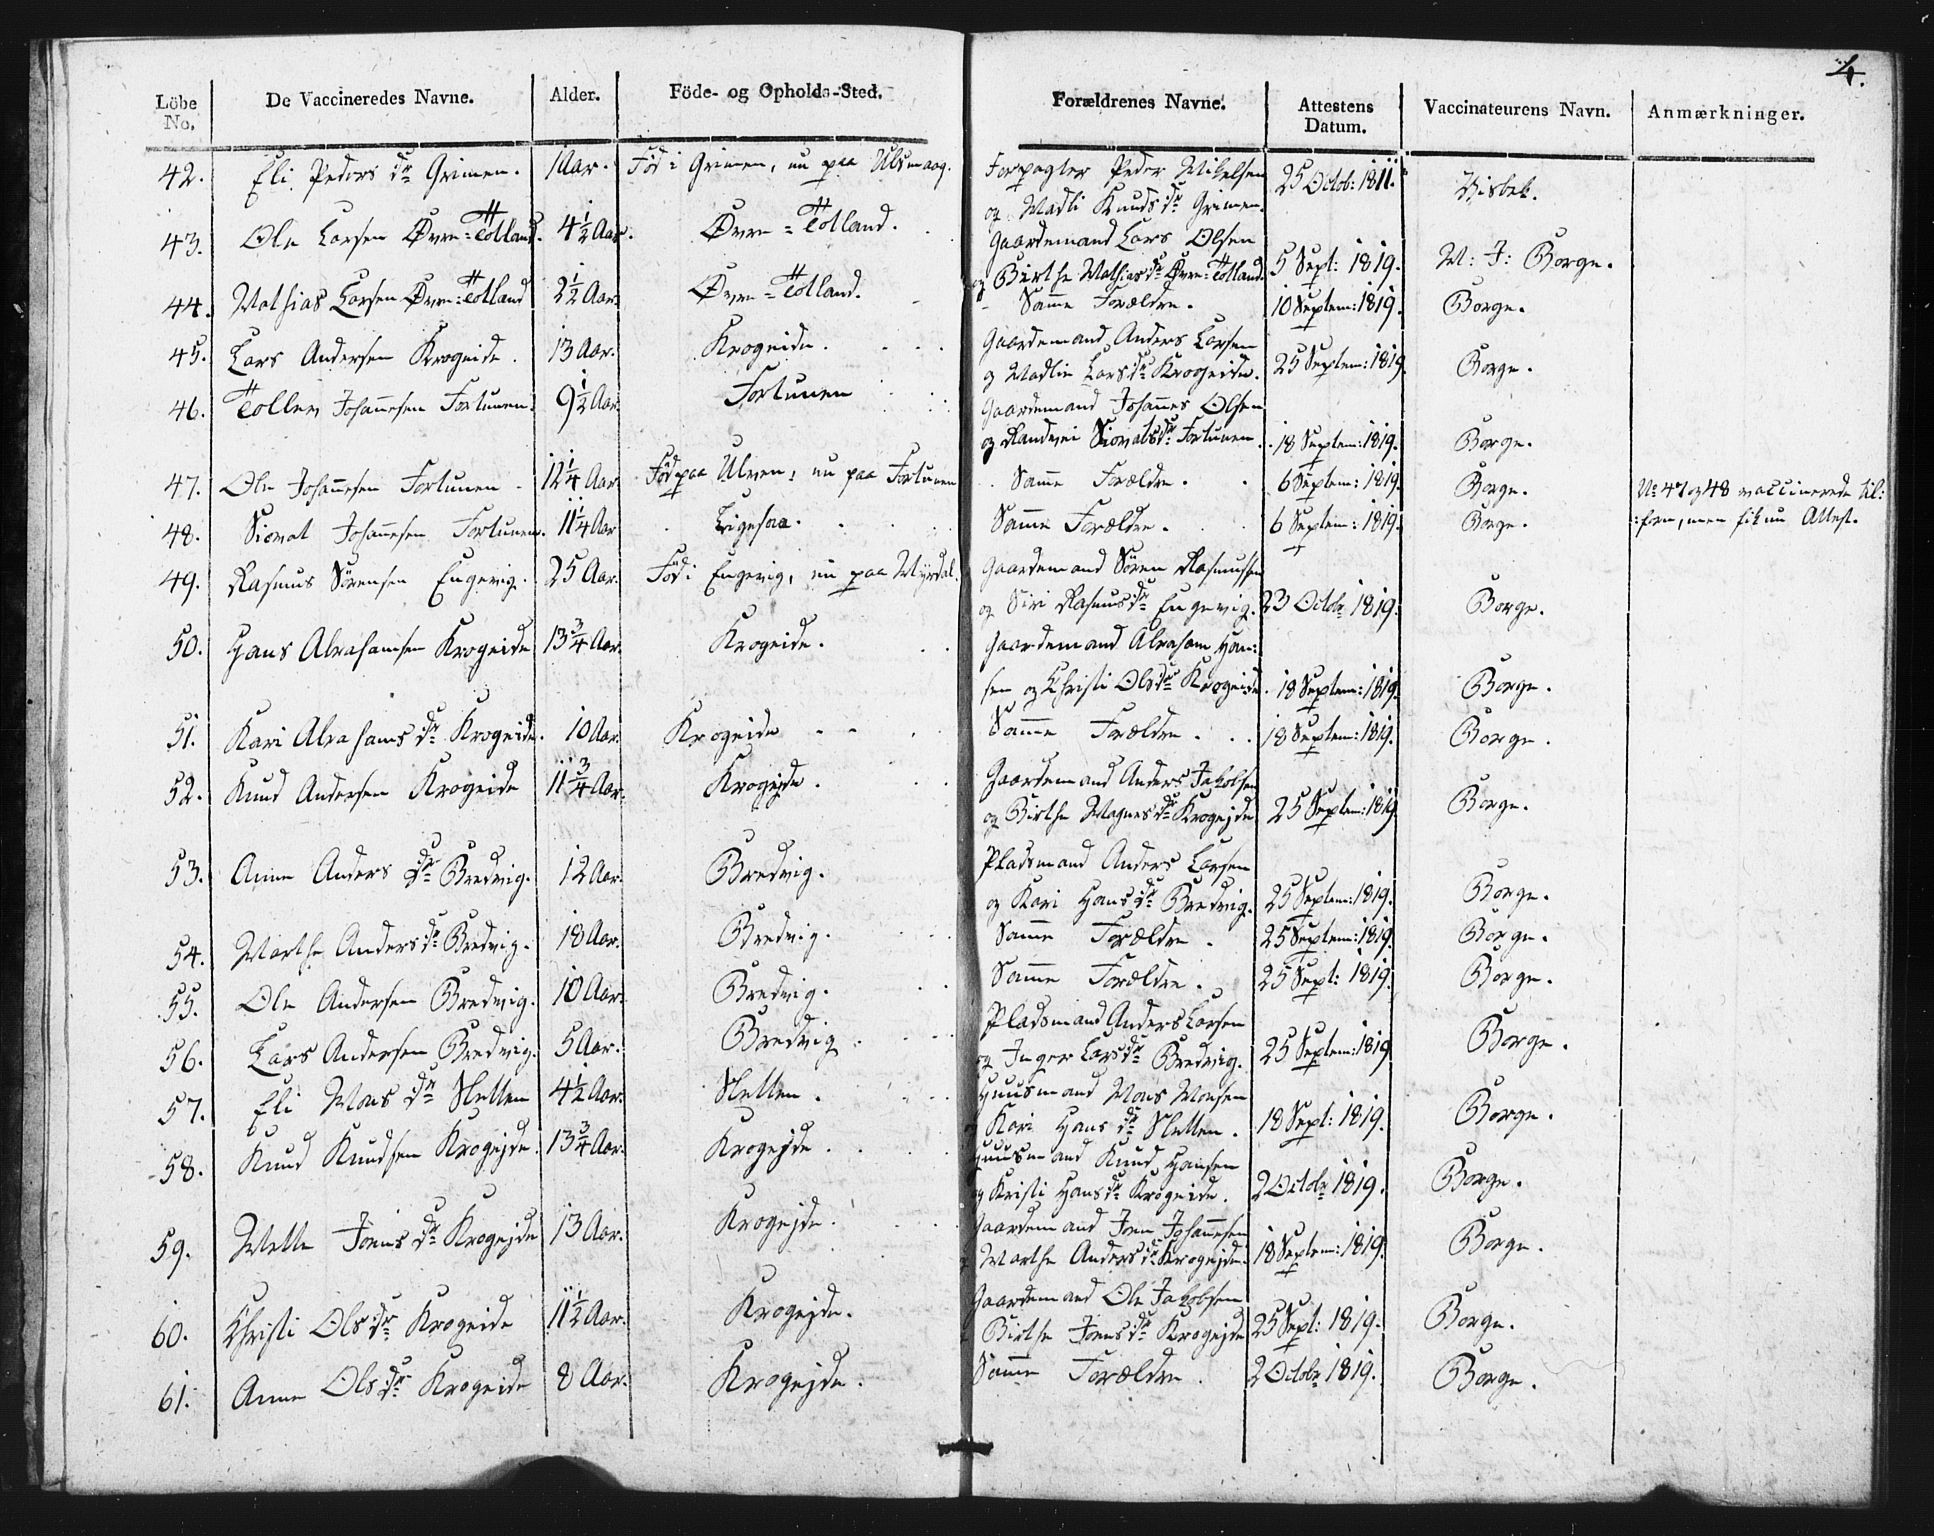 4.
Löbe No. De Vaccineredes Navne. Alder. Föde- og Opholds-Sted. Forældrenes Navne. Attestens Datum. Vaccinateurens Navn. Anmærkninger.
42. Eli Peders dr Grimen. 1 Aar. Föd i Grimen, nu paa Ulsmaag. Forpagter Peder Mikelsen og Madli Knuds dr Grimen. 25 Octob: 1811. Visbek.
43. Ole Larsen Øvre-Totland. 4½ Aar. Øvre-Totland. Gaardemand Lars Olsen og Birthe Mathias dr Øvre-Totland. 5 Sept: 1819. M: J: Borge.
44. Mathias Larsen Øvre-Totland 2½ Aar. Øvre-Totland. Samme Forældre. 10 Septem: 1819. Borge.
45. Lars Andersen Krogeide. 13 Aar. Krogeide. Gaardemand Anders Larsen og Madlie Lars dr Krogeide. 25 Septem: 1819 Borge.
46. Tollev Johannesen Fortunen. 9½ Aar. Fortunen Gaardemand Johannes Olsen og Randvei Siovats dr Fortunen. 18 Septem: 1819. Borge.
47. Ole Johannesen Fortunen 12¼ Aar. Föd paa Ulven, nu paa Fortunen Samme Forældre. 6 Septem: 1819. Borge. No 47 og 48 vaccinerede til:
48. Siovat Johannesen Fortunen. 11¼ Aar Ligesaa. Samme Forældre. 6 Septem: 1819. Borge. :forn, men fik nu Attest.
49. Rasmus Sörensen Engevig. 25 Aar. Föd i Engevig, nu paa Myrdal. Gaardemand Sören Rasmussen og Siri Rasmus dr Engevig. 23 Octobr 1819. Borge.
50. Hans Abrahamsen Krogeide 13¾ Aar. Krogeide. Gaardemand Abraham Han: sen og Christi Ols dr Krogeide. 18 Septem: 1819. Borge.
51. Kari Abrahams dr Krogeide. 10 Aar. Krogeide Samme Forældre. 18 Septem: 1819. Borge.
52. Knud Andersen Krogeide 11¾ Aar. Krogejde. Gaardemand Anders Jakobsen og Birthe Magnes dr Krogejde 25 Septem: 1819 Borge.
53. Anne Anders dr Bredvig. 12 Aar. Bredvig. Pladsmand Anders Larsen og Kari Hans dr Bredvig. 25 Septem: 1819. Borge.
54. Marthe Anders dr Bredvig. 18 Aar. Bredvig. Samme Forældre. 25 Septem: 1819. Borge.
55. Ole Andersen Bredvig. 10 Aar. Bredvig. Samme Forældre. 25 Sept: 1819. Borge.
56. Lars Andersen Bredvig. 5 Aar. Bredvig. Pladsmand Anders Larsen og Inger Lars dr Bredvig. 25 Septem: 1819 Borge.
57. Eli Mons dr Sletten 4½ Aar. Sletten. Huusmand Mons Monsen Kari Hans dr Sletten. 18 Sept: 1819. Borge.
58. Knud Knudsen Krogejde. 13¾ Aar. Krogejde. Huusmand Knud Hansen og Kristi Hans dr Krogeide. 2 Octobr 1819. Borge.
59. Mette Joens dr Krogejde 13 Aar. Krogejde. Gaardemand Joen Johannesen Marthe Anders dr Krogejde. 18 Septem: 1819. Borge.
60. Christi Ols dr Krogeide 11½ Aar. Krogejde. Gaardemand Ole Jakobsen Birthe Joens dr Krogejde 25 Sept: 1819. Borge.
61. Anne Ols dr Krogeide 8 Aar. Krogejde. Samme Forældre. 2 Octobr 1819. Borge.